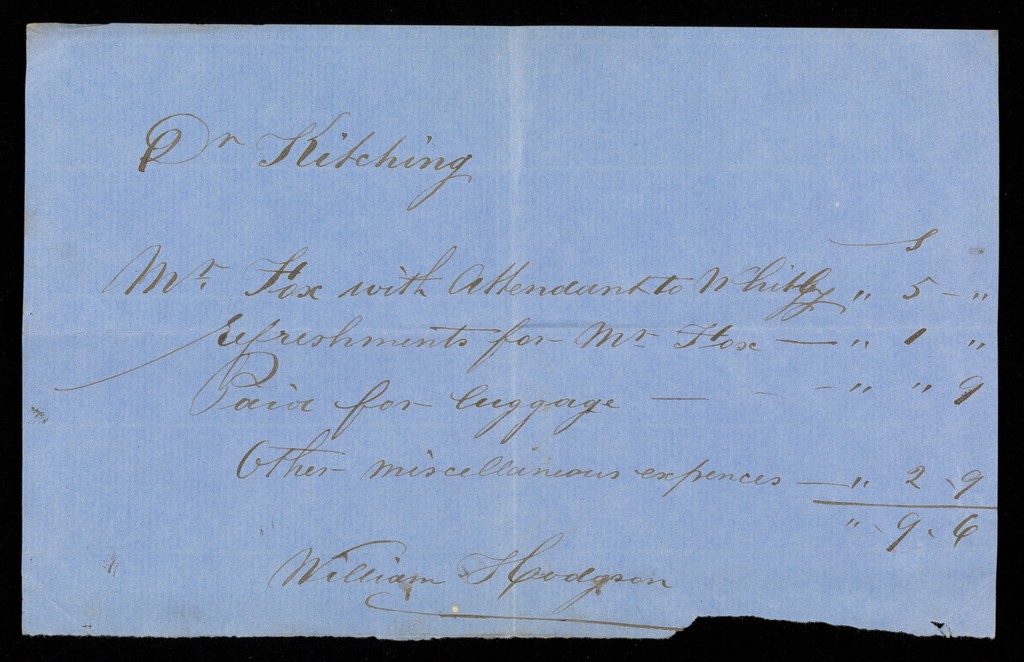 Dr Kitching
s
Mr. Fox with Attendant to Whitby " 5 - "
Refreshments for Mr Fox — " 1 "
Paid for luggage — - - " " 9
Other miscellaneous expences — " 2 - 9
" - 9 - 6
William Hodgson